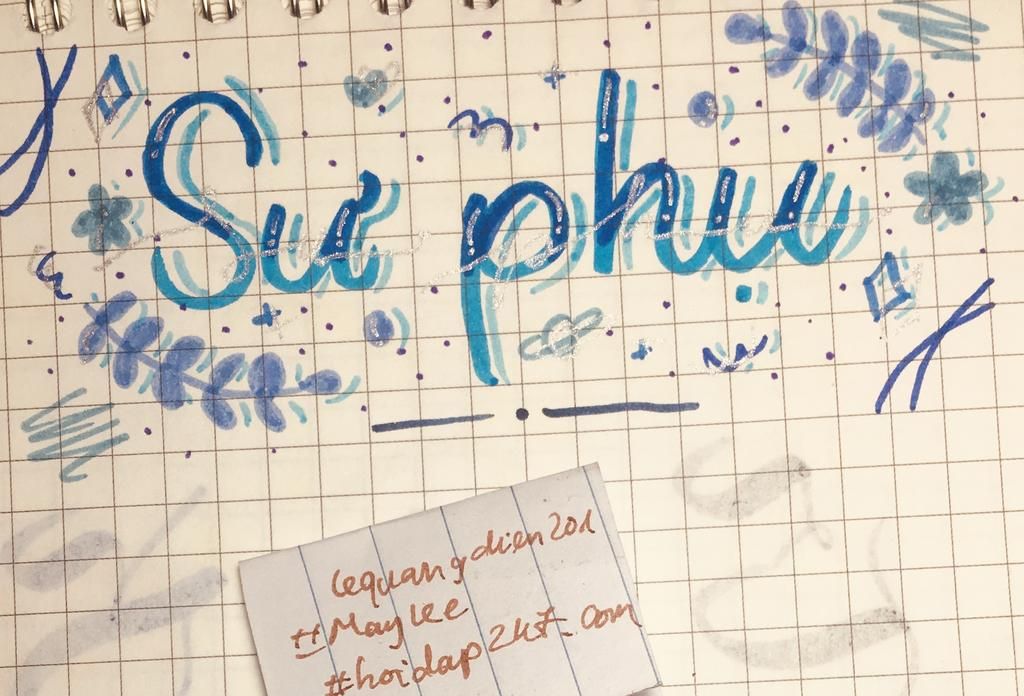 Sư phụ
lequangdien201
#MayLee
#hoidap2k7_com